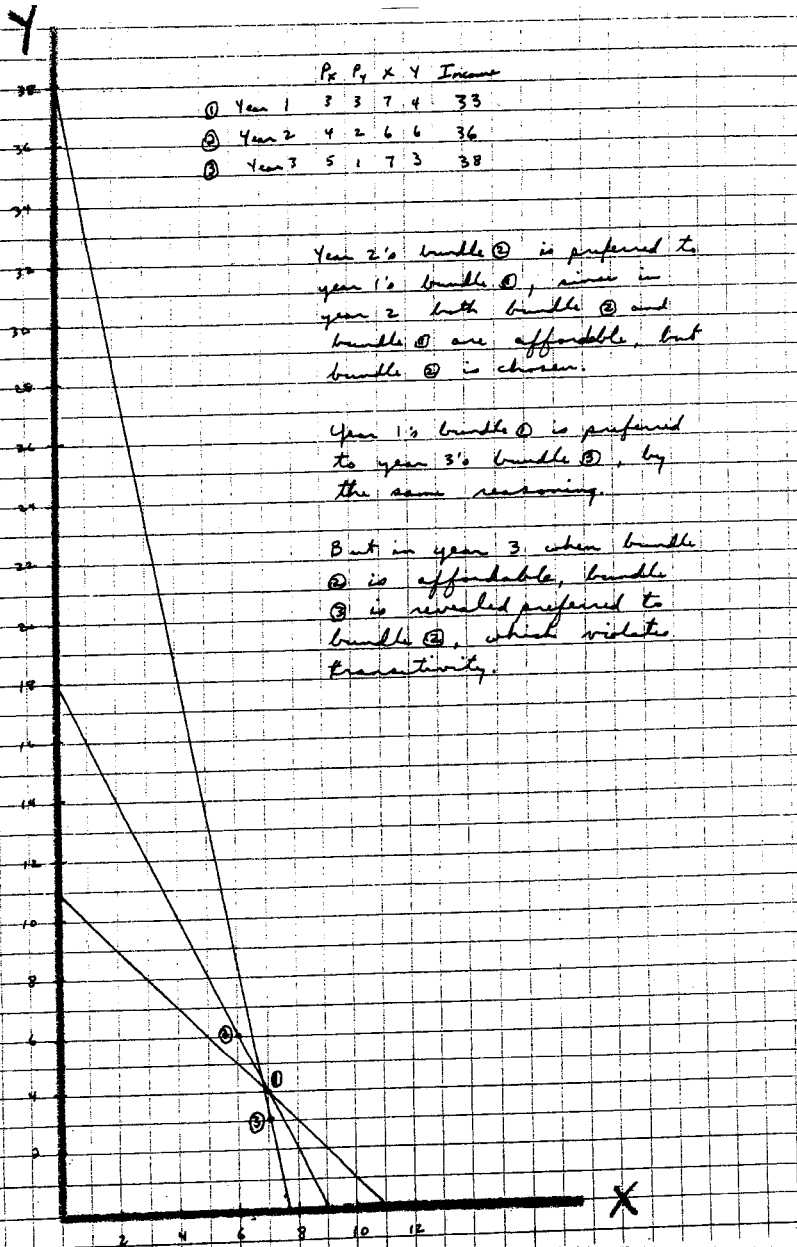 Y
Px Py X Y Income
① Year 1 3 3 7 4 33
② Year 2 4 2 6 6 36
③ Year 3 5 1 7 3 38
Year 2's bundle ② is preferred to
year 1's bundle ①, since in
year 2 both bundle ② and
bundle ① are affordable, but
bundle ② is chosen.
Year 1's bundle ① is preferred
to year 3's bundle ③, by
the same reasoning.
But in year 3 when bundle
② is affordable, bundle
③ is revealed preferred to
bundle ②, which violates
transitivity.
38
36
34
32
30
28
26
24
22
20
18
16
14
12
10
8
6
4
2
②
①
③
X
2 4 6 8 10 12